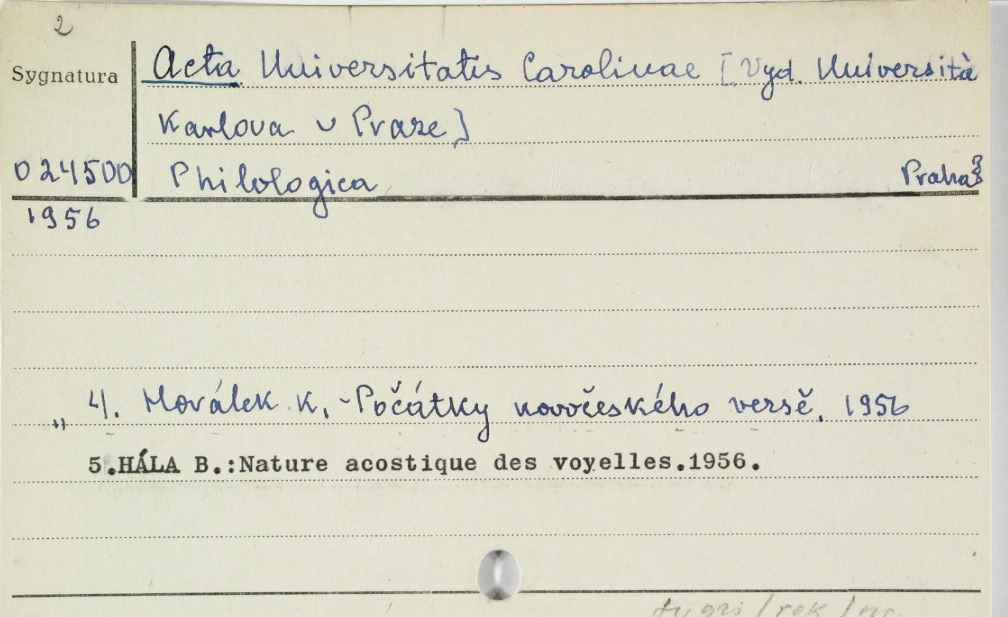 2
Sygnatura
Acta Universitatis Carolinae [Vyd. Università
Karlova v Praze]
024500 Philologica Praha
1956
„ 4). Horálek K. - Počátky novočeského versě. 1956
5.HÁLA B.:Nature acostique des voyelles.1956.
/ rok / nr.